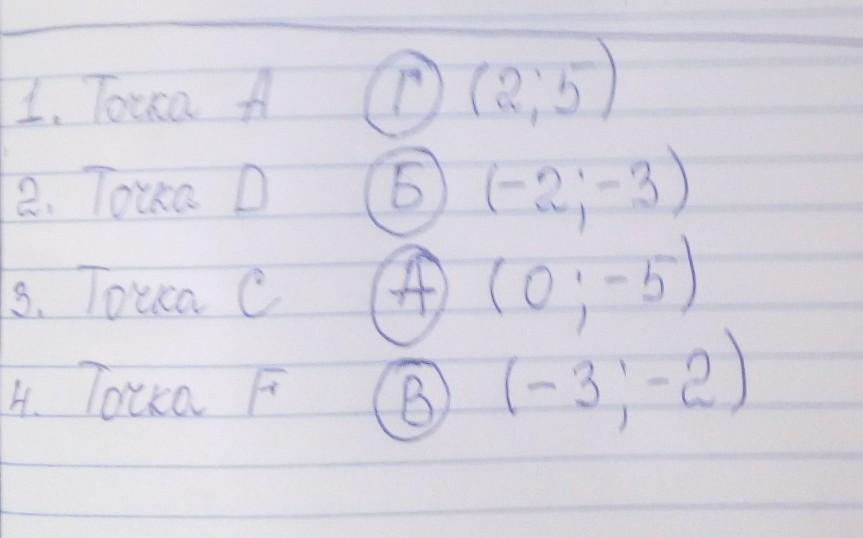 1. Точка A Г (2;5)
2. Точка D Б (-2;-3)
3. Точка C А (0;-5)
4. Точка F В (-3;-2)